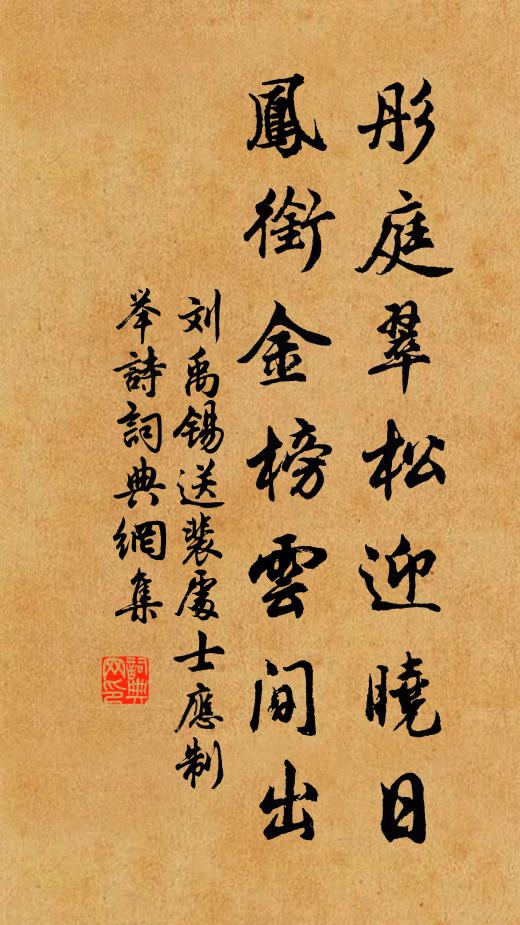 彤庭翠松迎曉日
鳳銜金榜雲間出
刘禹錫送裴處士應制
举詩詞典網集
詞典
网印